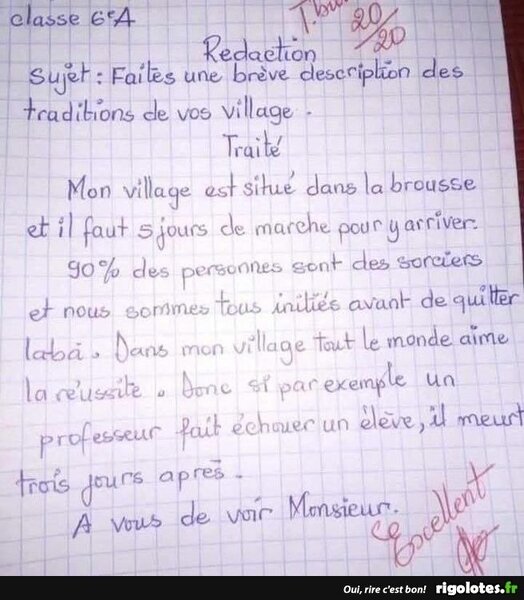 classe 6eA
T.bi
20/20
Redaction
Sujet : Faites une brève description des
traditions de vos village.
Traité
Mon village est situé dans la brousse
et il faut 5 jours de marche pour y arriver.
90% des personnes sont des sorciers
et nous sommes tous initiés avant de quitter
labà. Dans mon village tout le monde aime
la réussite. Donc si par exemple un
professeur fait échouer un élève, il meurt
trois jours après.
A vous de voir Monsieur.
Excellent
Oui, rire c'est bon! rigolotes.fr